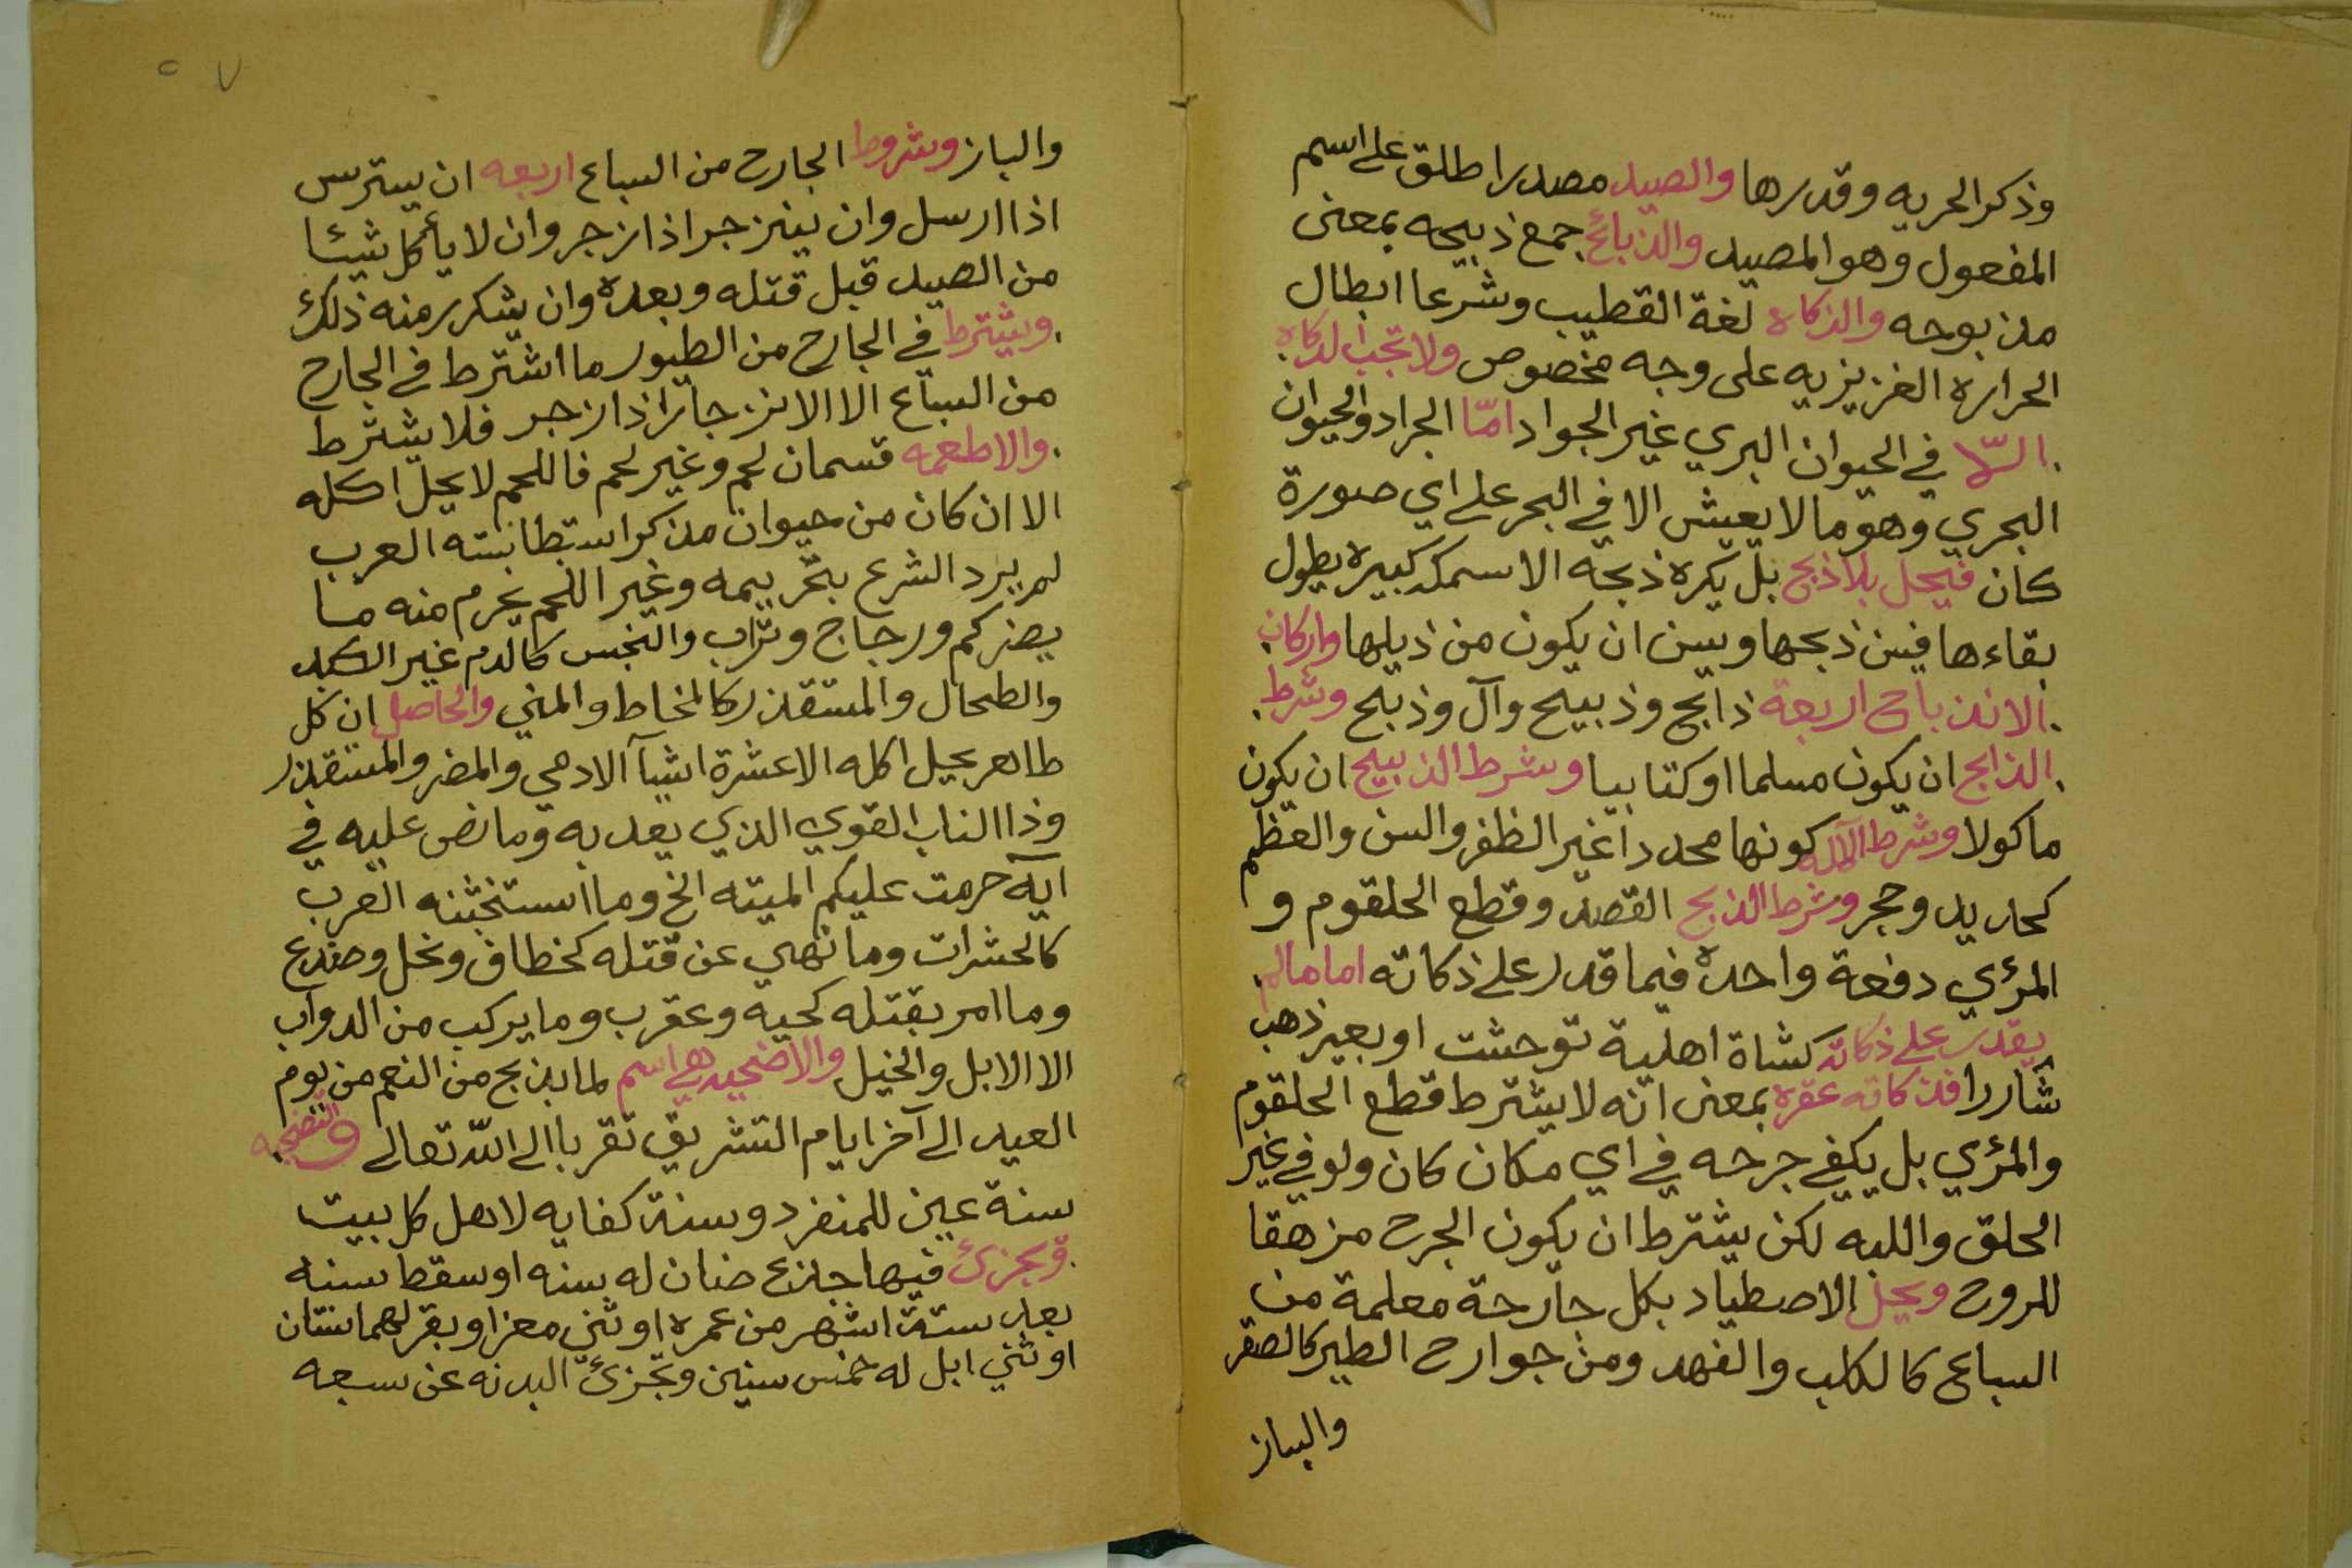 وذكر الحريه وقدرها والصيد مصدر اطلق على اسم
المفعول وهو المصيد والذبائح جمع ذبيحه بمعنى
مذبوحه والذكاه لغة القطيب وشرعا ابطال
الحراره الغزيزيه على وجه مخصوص ولا تجب الذكاه
الا في الحيوان البري غير الجواد امّا الجراد والحيوان
البحري وهو ما لا يعيش الا في البحر على اي صورة
كان فيحل بلا ذبح بل يكره ذبحه الا سمكه كبيره يطول
بقاءها فيسن ذبحها ويسن ان يكون من ذيلها واركان
الانذباح اربعة ذابح وذبيح وآل وذبح وشرط
الذابح ان يكون مسلما او كتابيا وشرط الذبيح ان يكون
ماكولا وشرط الآله كونها محددا غير الظفر والسن والعظم
كحاديد وحجر وشرط الذبح القصد وقطع الحلقوم و
المرئي دفعة واحدة فيما قدر على ذكاته اما مالم
يقدر على ذكاته كشاة اهلية توحشت او بعير ذهب
شاردا فذكاته عقره بمعنى انه لا يشترط قطع الحلقوم
والمرئي بل يكفي جرحه في اي مكان كان ولو في غير
الحلق واللبه لكن يشترط ان يكون الجرح مزهقا
للروح ويحل الاصطياد بكل جارحة معلمة من
السباع كالكلب والفهد ومن جوارح الطير كالصقر
والباز
٥٧
والباز وشروط الجارح من السباع اربعه ان يسترس
اذا ارسل وان ينزجر اذا زجر وان لا يأكل شيئا
من الصيد قبل قتله وبعده وان يتكرر منه ذلك
ويشترط في الجارح من الطيور ما اشترط في الجارح
من السباع الا الانزجار اذا زجر فلا يشترط
والاطعمه قسمان لحم وغير لحم فاللحم لا يحل اكله
الا ان كان من حيوان مذكر استطابته العرب
لم يرد الشرع بتحريمه وغير اللحم يحرم منه ما
يضر كم ورجاج وتراب والنجس كالدم غير الكبد
والطحال والمستقذر كالمخاط والمني والحاصل ان كل
طاهر يحل اكله الا عشرة اشيآ الادمي والمضر والمستقذر
وذا الناب القوي الذي يعد به وما نص عليه في
آية حرمت عليكم الميته الخ وما استخثبنه العرب
كالحشرات وما نهي عن قتله كخطاف ونحل وضفدع
وما امر بقتله كحية وعقرب وما يركب من الدوآب
الا الابل والخيل والاضحيه هي اسم لما يذبح من النعم من يوم
العيد الى آخر ايام التشريق تقربا الى الله تعالى والتضحيه
سنة عين للمنفرد وسنة كفايه لاهل كل بيت
ويجزئ فيها جذع ضان له سنه او سقط سنه
بعد ستة اشهر من عمره او ثني معز او بقر لهما سنتان
او ثني ابل له خمس سنين وتجزئ البدنه عن سبعه